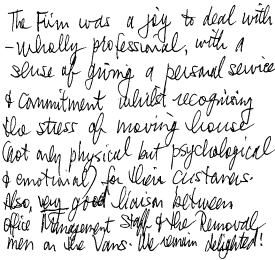 The Firm was a joy to deal with
- wholly professional, with a
sense of giving a personal service
& commitment whilst recognising
the stress of moving house
(not only physical but psychological
& emotional) for their customers.
Also, very good liaison between
Office Management Staff & the Removal
men on the Vans. We remain delighted!